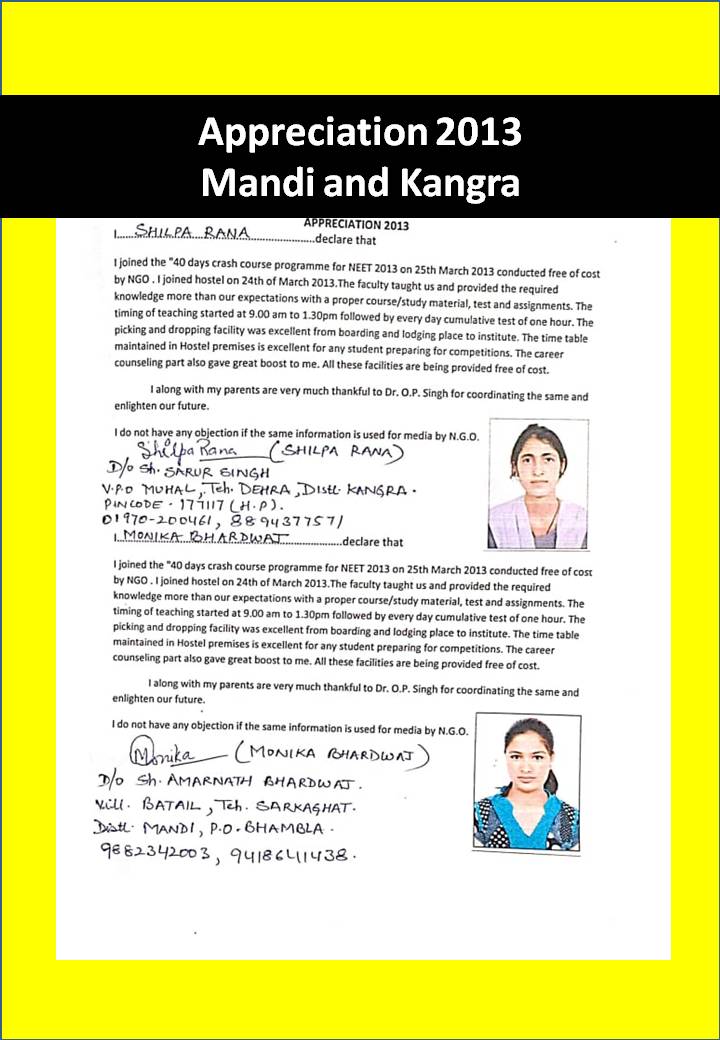 Appreciation 2013
Mandi and Kangra
APPRECIATION 2013
I......SHILPA RANA..........................declare that
I joined the "40 days crash course programme for NEET 2013 on 25th March 2013 conducted free of cost
by NGO . I joined hostel on 24th of March 2013.The faculty taught us and provided the required
knowledge more than our expectations with a proper course/study material, test and assignments. The
timing of teaching started at 9.00 am to 1.30pm followed by every day cumulative test of one hour. The
picking and dropping facility was excellent from boarding and lodging place to institute. The time table
maintained in Hostel premises is excellent for any student preparing for competitions. The career
counseling part also gave great boost to me. All these facilities are being provided free of cost.
I along with my parents are very much thankful to Dr. O.P. Singh for coordinating the same and
enlighten our future.
I do not have any objection if the same information is used for media by N.G.O.
Shilpa Rana (SHILPA RANA)
D/o Sh. SARUR SINGH
V.P.O MUHAL, Teh. DEHRA, Distt. KANGRA.
PINCODE - 177117 (H.P).
01970-200461, 8894377571
I..MONIKA BHARDWAJ....................declare that
I joined the "40 days crash course programme for NEET 2013 on 25th March 2013 conducted free of cost
by NGO . I joined hostel on 24th of March 2013.The faculty taught us and provided the required
knowledge more than our expectations with a proper course/study material, test and assignments. The
timing of teaching started at 9.00 am to 1.30pm followed by every day cumulative test of one hour. The
picking and dropping facility was excellent from boarding and lodging place to institute. The time table
maintained in Hostel premises is excellent for any student preparing for competitions. The career
counseling part also gave great boost to me. All these facilities are being provided free of cost.
I along with my parents are very much thankful to Dr. O.P. Singh for coordinating the same and
enlighten our future.
I do not have any objection if the same information is used for media by N.G.O.
Monika (MONIKA BHARDWAJ)
D/o Sh. AMARNATH BHARDWAJ.
Vill. BATAIL, Teh. SARKAGHAT.
Distt. MANDI, P.O. BHAMBLA.
9882342003, 9418641438.